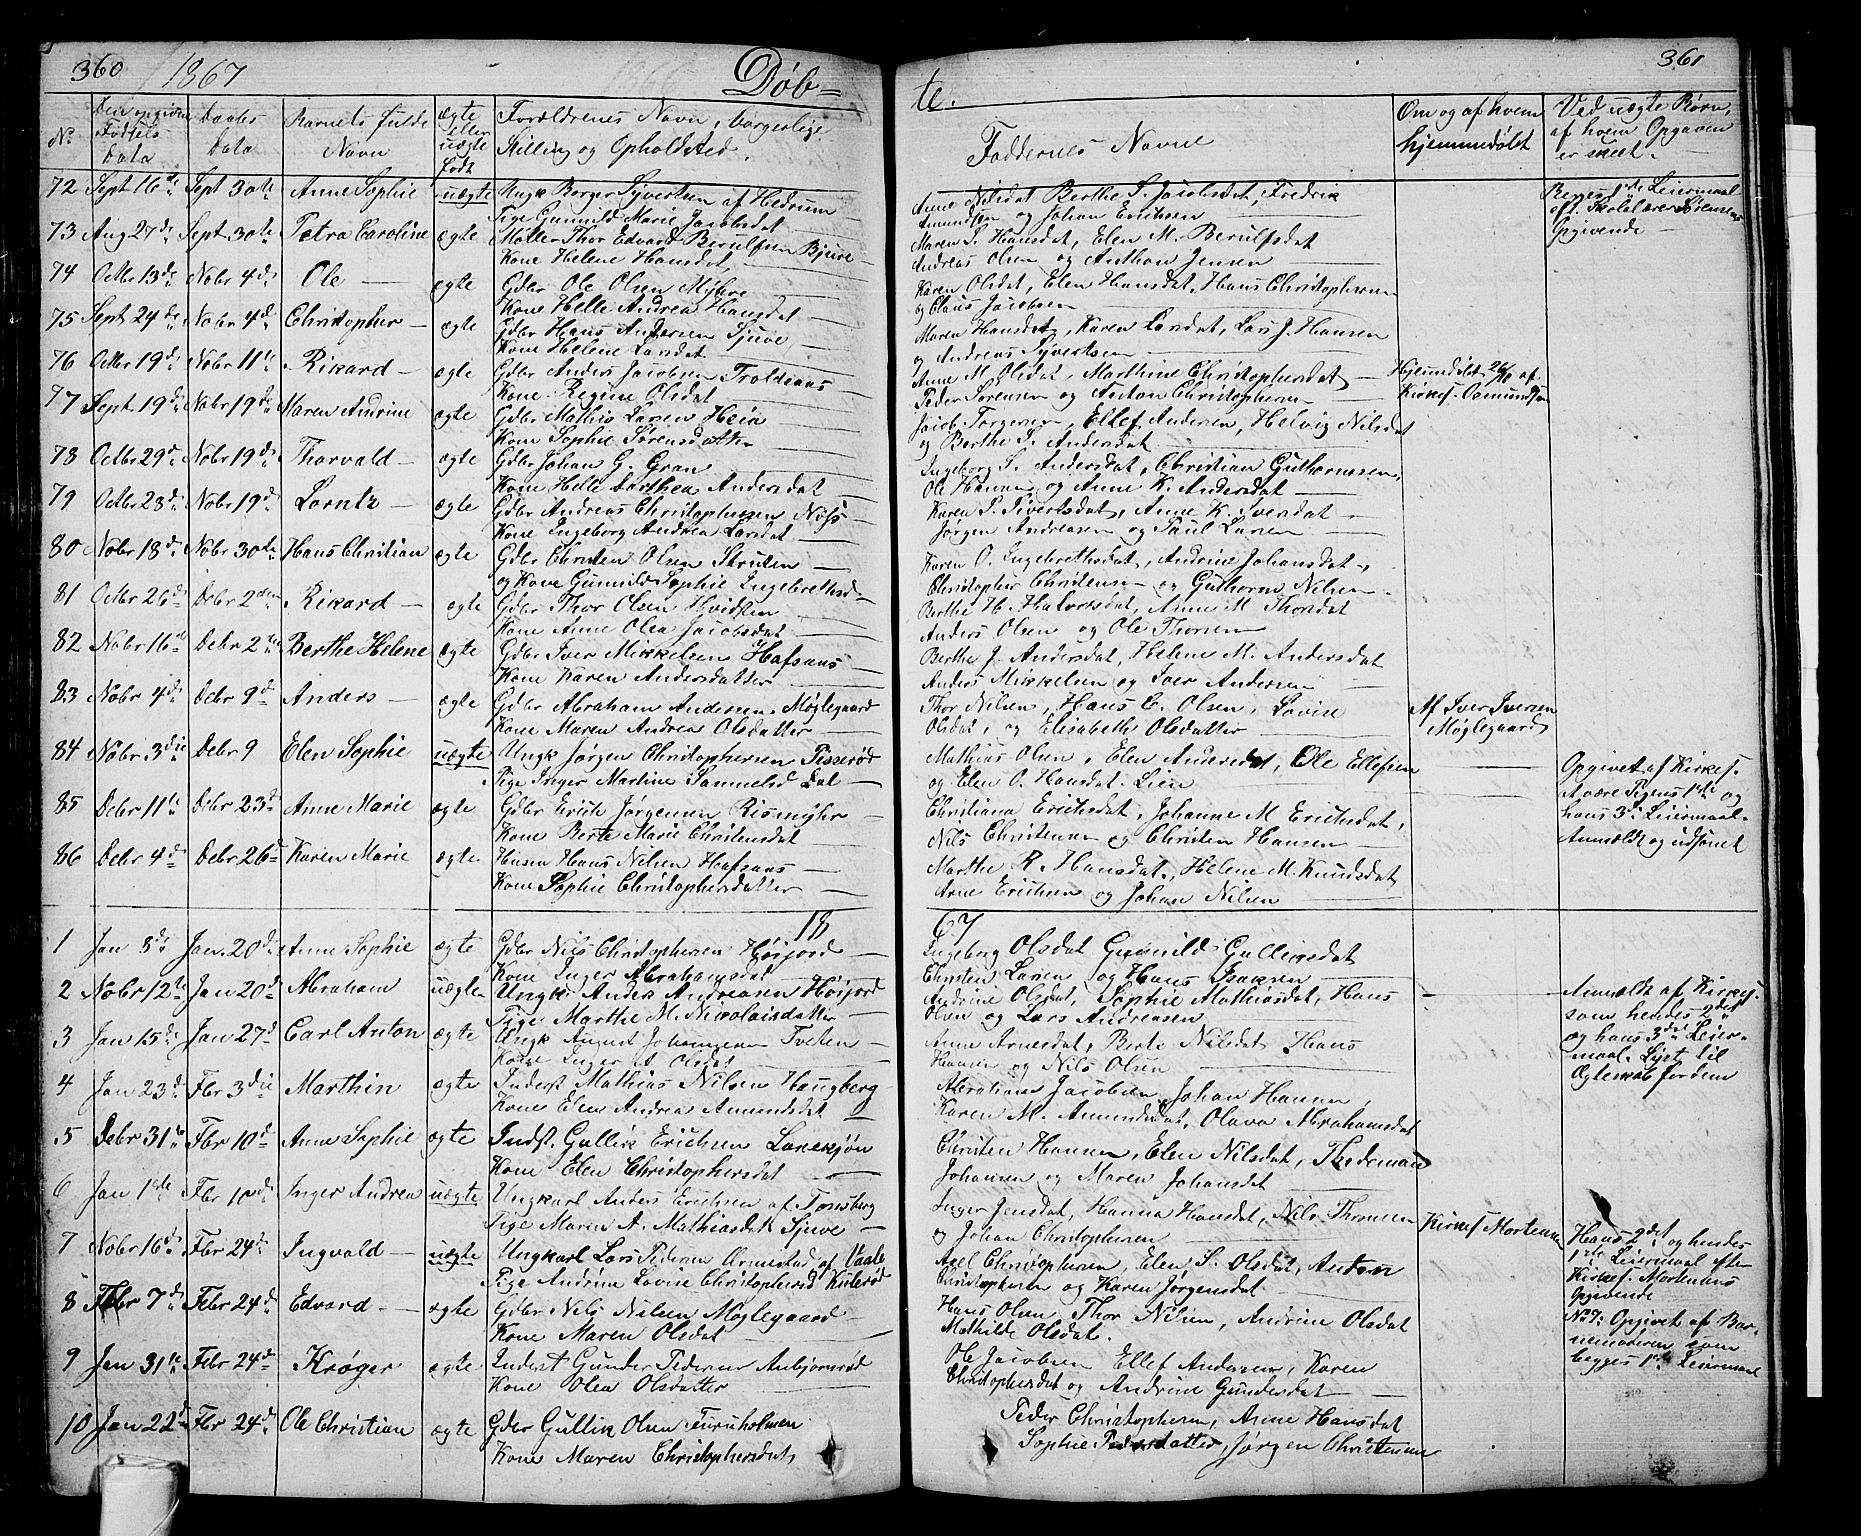 360 1867 Døb=
No.
Den opgivne Fødsels Data
Daabs Data
Barnets fulde Navn
ægte eller uægte født
Forældrenes Navn, borgerlige Stilling og Opholdsted.
72 Sept 16de Sept 30te Anne Sophie uægte Ungk Borger Syvertsen af Hedrum
Pige Gunnild Marie Jacobsdat
73 Aug 27de Sept. 30te Petra Caroline ægte Møller Thor Edvard Berulfsen Bjuve
Kone Helene Hansdat
74 Octbr 13de Nobr 4de Ole ægte Gdbr Ole Olsen Myhre
Kone Helle Andrea Hansdat
75 Sept 24de Nobr 4de Christopher ægte Gdbr Hans Andersen Sjuve
Kone Helene Larsdat
76 Octbr 19de Nobr 11te Rikard ægte Gdbr Anders Jacobsen Troldsaas
Kone Regine Olsdat
77 Sept 19de Nobr 19de Maren Andrine ægte Gdbr Mathis Larsen Heia
Kone Sophie Sørensdatter
78 Octbr 29de Nobr 19de Thorvald ægte Gdbr Johan G. Gran
Kone Helle Dorthea Andersdat
79 Octbr 23de Nobr 19de Lorntz ægte Gdbr Andreas Christophersen
Kone Ingeborg Andrea Larsdat
80 Nobr 18de Nobr 30te Hans Christian ægte Gdbr Christen Olsen Struten
og Kone Gunnild Sophie Ingebrethsd
81 Octbr 26de Debr 2den Rikard ægte Gdbr Thor Olsen Hvidsten
Kone Anne Olea Jacobsdat
82 Nobr 16de Debr 2den Berthe Helene ægte Gdbr Iver Mikkelsen Hafsaas
Kone Karen Andersdatter
83 Nobr 4de Debr 9de Anders ægte Gdbr Abraham Andersen Møglegaard
Kone Maren Andrea Olsdatter
84 Nobr 3die Debr 9 Elen Sophie uægte Ungk Jørgen Christophersen Tisserød
Pige Inger Martine Samuelsd Dal
85 Debr 11te Debr 23de Anne Marie ægte Gdbr Erich Jørgensen Rismyhr
Kone Berte Marie Christensdat
86 Debr 4de Debr 26de Karen Marie ægte Husm Hans Nilsen Hafsaas
Kone Sophie Christophersdatter
18
1 Jan 8de Jan. 20de Anne Sophie ægte Gdbr Nils Christophersen Høijord
Kone Inger Abrahamsdat
2 Nobr 12te Jan 20de Abraham uægte Ungk. Anders Andreasen Høijord
Pige Marthe M. Nicolaisdatter
3 Jan 15de Jan 27de Carl Anton ægte Ungk August Johannesen Tveten
Kone Inger A. Olsdat
4 Jan 23de Fbr 3die Marthin ægte Inderst Mathias Nilsen Haugberg
Kone Elen Andrea Amundsdat
5 Debr 31te Fbr 10de Anne Sophie ægte Indst. Gullik Erichsen
Kone Elen Christophersdat
6 Jan 1ste Fbr 10de Inger Andrea uægte Ungkarl Anders Erichsen af Tønsberg
Pige Maren A. Mathiasdat Sjuve
7 Nobr 16de Fbr 24de Ingvald uægte Ungkarl Lars Pedersen Ormestad af Vaale
Pige Andrine Lovise Christophersd
8 Febr 7de Febr 24de Edvard ægte Gdbr Nils Nilsen Møglegaard
Kone Maren Olsdat
9 Jan 31te Febr 24de Krøger ægte Inderst Gunder Pedersen Anbjørnrød
Kone Olea Olsdatter
10 Jan 22de Fbr 24de Ole Christian ægte Gdbr Gullik Olsen Furuholmen
Kone Maren Christophersdat
te. 361
Faddernes Navne
Om og af hvem hjemmedøbt
Ved uægte Børn, af hvem Opgaven er skeet.
Anne Nilsdat Berthe S. Jacobsdat, Fredrik
Amundsen og Johan Erichsen
Begges 1ste Leiermaal
eft. Skolelærer Sørensens
Opgivende
Maren S. Hansdat, Elen M. Berulfsdat
Andreas Olsen og Anthon Jensen
Karen Olsdat, Elen Hansdat, Hans Christophersen
og Claus Jacobsen
Maren Hansdat, Karen Larsdat, Lars J. Hansen
og Andreas Syvertsen
Anne M. Olsdat, Marthine Christophersdat
Peder Sørensen og Anton Christophersen
Hjemmedøbt 26/10 af
Kirkes. Osmundsen
Jacob Torgersen, Ellef Andersen, Helvig Nilsdat
og Berthe S. Andersdat
Ingeborg S. Andersdat, Christian Guthormsen,
Ole Hansen og Anne K. Andersdat
Karen P. Sivertsdat, Anne K. Iversdat
Jørgen Andreasen og Paul Larsen
Karen O. Ingebrethsdat, Andrine Johansdat,
Christopher Christensen og Guthorm Nilsen
Berthe H. Halvorsdat, Anne M. Thorsdat
Anders Olsen og Ole Thorsen
Berthe J. Andersdat, Helene M. Andersdat
Anders Mikkelsen og Iver Andersen
Thor Nilsen, Hans C. Olsen, Lovise
Olsdat, og Elisabeth Olsdatter
Af Iver Iversen
Møglegaard
Mathias Olsen, Elen Andersdat, Ole Ellefsen
og Elen O. Hansdat. Lien
Opgivet af Kirkes.
at være Pigens 1ste og
hans 3de Leiermaal.
Anmeldt og udsonet
Christiana Erichsdat, Johanne M Erichsdat,
Nils Christensen og Christen Hansen
Marthe R. Hansdat, Helene M. Knudsdat
Arne Erichsen og Johan Nilsen
67
Ingeborg Olsdat Gunnild Gulliksdat
Christen Larsen og Hans Isaksen
Andrine Olsdat, Sophie Mathiasdat, Hans
Olsen og Lars Andreasen
Anmeldt af Kirkes.
som hendes 2det
og hans 3die Leier-
maal. Lyst til
Ægteskab fordem
Anne Arnesdat, Berte Nilsdat Hans
Hansen og Nils Olsen
Abraham Jacobsen, Johan Hansen,
Karen M. Amundsdat, Olava Abrahamsdat
Christen Hansen, Elen Nilsdat, Thideman
Johansen og Maren Johansdat
Inger Jensdat, Hanna Hansdat, Nils Thomsen
og Johan Christophersen
Kirkes Mortensen
Hans 2det og hendes
1ste Leiermaal efter
Kirkes. Mortensens
Opgivende
Axel Christophersen, Elen S. Olsdat, Anton
Christophersen og Karen Jørgensdat
Hans Olsen Thor Nilsen, Andrine Olsdat
Mathilde Olsdat.
No 7: Opgivet af Bar-
nemoderen som
begges 1ste Leiermaal
Ole Jacobsen Ellef Andersen, Karen
Christophersdat og Andrine Gundersdat
Peder Christophersen, Anne Hansdat
Sophie Pedersdatter, Jørgen Christensen